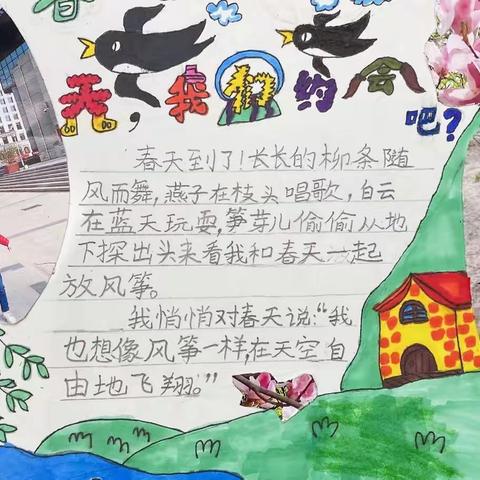 春
天，我们约会
吧？
春天到了！长长的柳条随
风而舞，燕子在枝头唱歌，白云
在蓝天玩耍，笋芽儿偷偷从地
下探出头来看我和春天一起
放风筝。
我悄悄对春天说：“我
也想像风筝一样，在天空自
由地飞翔。”